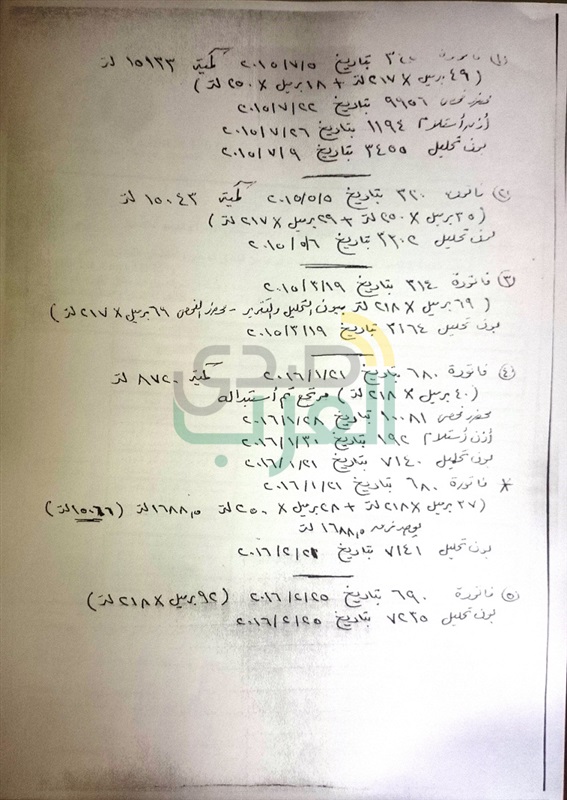 (١) فاتورة ٣٤٠ بتاريخ ٢٠١٥/٧/٥ كمية ١٥١٣٣ لتر
(٤٩ برميل × ٢١٧ لتر + ١٨ برميل × ٢٥٠ لتر)
محضر فحص ٩٩٥٦ بتاريخ ٢٠١٥/٧/٢٢
أذن أستلام ١١٩٤ بتاريخ ٢٠١٥/٧/٢٦
بون تحليل ٣٤٥٥ بتاريخ ٢٠١٥/٧/٩
(٢) فاتورة ٣٢٠ بتاريخ ٢٠١٥/٥/٥ كمية ١٥٠٤٣ لتر
(٣٥ برميل × ٢٥٠ لتر + ٢٩ برميل × ٢١٧ لتر)
بون تحليل ٣٣٠٢ بتاريخ ٢٠١٥/٥/٦
(٣) فاتورة ٣١٤ بتاريخ ٢٠١٥/٣/١٩
(٦٩ برميل × ٢١٨ لتر ببون التحليل والتقرير - محضر الفحص ٦٩ برميل × ٢١٧ لتر)
بون تحليل ٣١٦٤ بتاريخ ٢٠١٥/٣/١٩
(٤) فاتورة ٦٨٠ بتاريخ ٢٠١٦/١/٢١ كمية ٨٧٢٠ لتر
(٤٠ برميل × ٢١٨ لتر) مرتجع تم أستبداله
محضر فحص ١٠٠٨١ بتاريخ ٢٠١٦/١/٢٨
أذن أستلام ١٩٢ بتاريخ ٢٠١٦/١/٣٠
بون تحليل ٧١٤٠ بتاريخ ٢٠١٦/١/٢١
* فاتورة ٦٨٠ بتاريخ ٢٠١٦/١/٢١
(٣٧ برميل × ٢١٨ لتر + ٢٨ برميل × ٢٥٠ لتر ١٦٨٨,٥ لتر (١٥٠٦٦ لتر)
يوجد فرق ١٦٨٨,٥ لتر
بون تحليل ٧١٤١ بتاريخ ٢٠١٦/٢/٢
(٥) فاتورة ٦٩٠ بتاريخ ٢٠١٦/٢/٢٥ (٩٢ برميل × ٢١٨ لتر)
بون تحليل ٧٢٣٥ بتاريخ ٢٠١٦/٢/٢٥
صدى
العرب